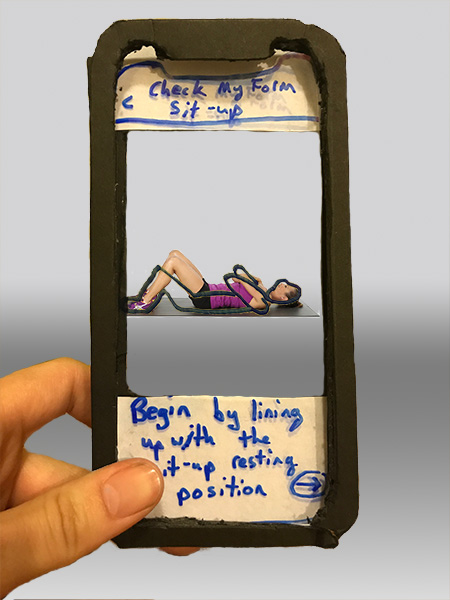 < Check My Form
Sit-up
Begin by lining
up with the
it-up resting
position →